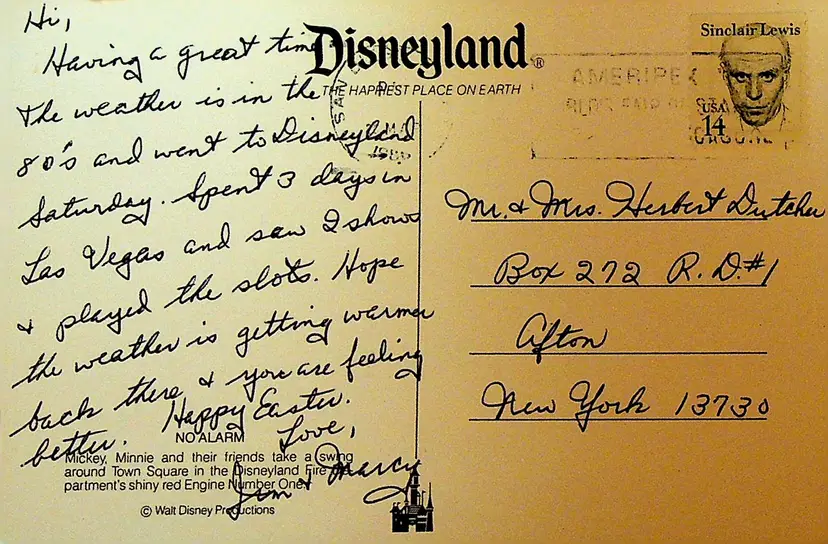 Hi,
Having a great time
The weather is in the
80's and went to Disneyland
Saturday. Spent 3 days in
Las Vegas and saw 2 shows
& played the slots. Hope
the weather is getting warmer
back there & you are feeling
better. Happy Easter.
Love,
Jim & Marcy
Disneyland®
THE HAPPIEST PLACE ON EARTH
NO ALARM
Mickey, Minnie and their friends take a swing
around Town Square in the Disneyland Fire De-
partment's shiny red Engine Number One.
© Walt Disney Productions
AMERIPEX
1986
Sinclair Lewis
USA
14
Mr. & Mrs. Herbert Dutcher
Box 272 R.D.#1
Afton
New York 13730